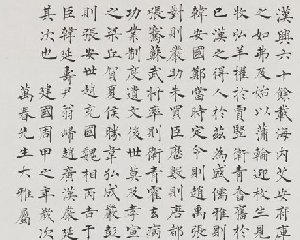 漢興六十餘載海內艾安府庫
之如弗及始以蒲輪迎枚生見
牧弘羊擢於賈豎衛青奮於
已漢之得人於茲為盛儒雅則
韓安國鄭當時定令則趙禹張
對則嚴助朱買臣歷數則唐都
張騫蘇武將率則衛青霍去病
功業制度遺文後世莫及孝宣
之梁丘賀夏侯勝韋玄成嚴彭
則張安世趙充國魏相丙吉于
臣韓延壽尹翁歸趙廣漢嚴延
其次也 建國周甲之年歲次
萬春先生大雅屬